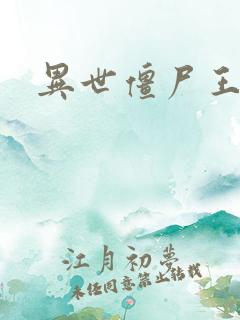 異世僵尸王
江月初梦
未经同意禁止转载